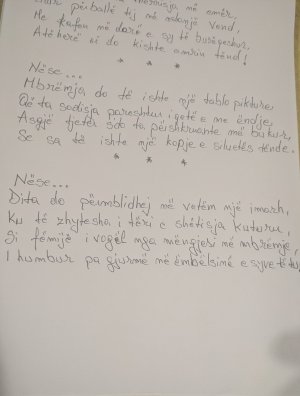 përballë tej më asnjë vend,
Me kafen në dorë e sy të buzëqeshur,
Atëherë ai do kishte emrin tënd!
* * *
Nëse...
Mbrëmja do të ishte një tablo pikture,
Që ta sodisja parreshtur i qetë e me ëndje,
Asgjë tjetër s'do ta përshkruante më bukur,
Se sa të ishte një kopje e siluetës tënde.
* * *
Nëse...
Dita do përmblidhej në vetëm një imazh,
Ku të zhytesha i tëri e shëtisja kuturu,
Si fëmijë i vogël nga mëngjesi në mbrëmje,
I humbur pa gjurmë në ëmbëlsinë e syve të tu